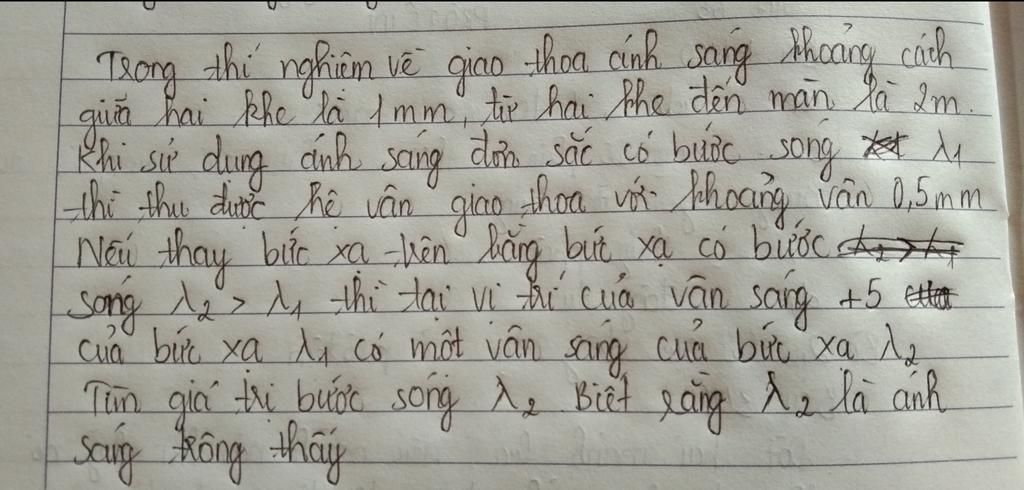 Trong thí nghiệm về giao thoa ánh sáng khoảng cách
giữa hai khe là 1mm, từ hai khe đến màn là 2m.
Khi sử dung ánh sáng đơn sắc có bước sóng λ1
thì thu được hệ vân giao thoa với khoảng vân 0,5mm
Nếu thay bức xạ trên bằng bức xạ có bước
sóng λ2 > λ1 thì tại vi trí của vân sáng +5
của bức xạ λ1 có một vân sáng của bức xạ λ2
Tìm giá trị bước sóng λ2 Biết rằng λ2 là ánh
sáng trông thấy